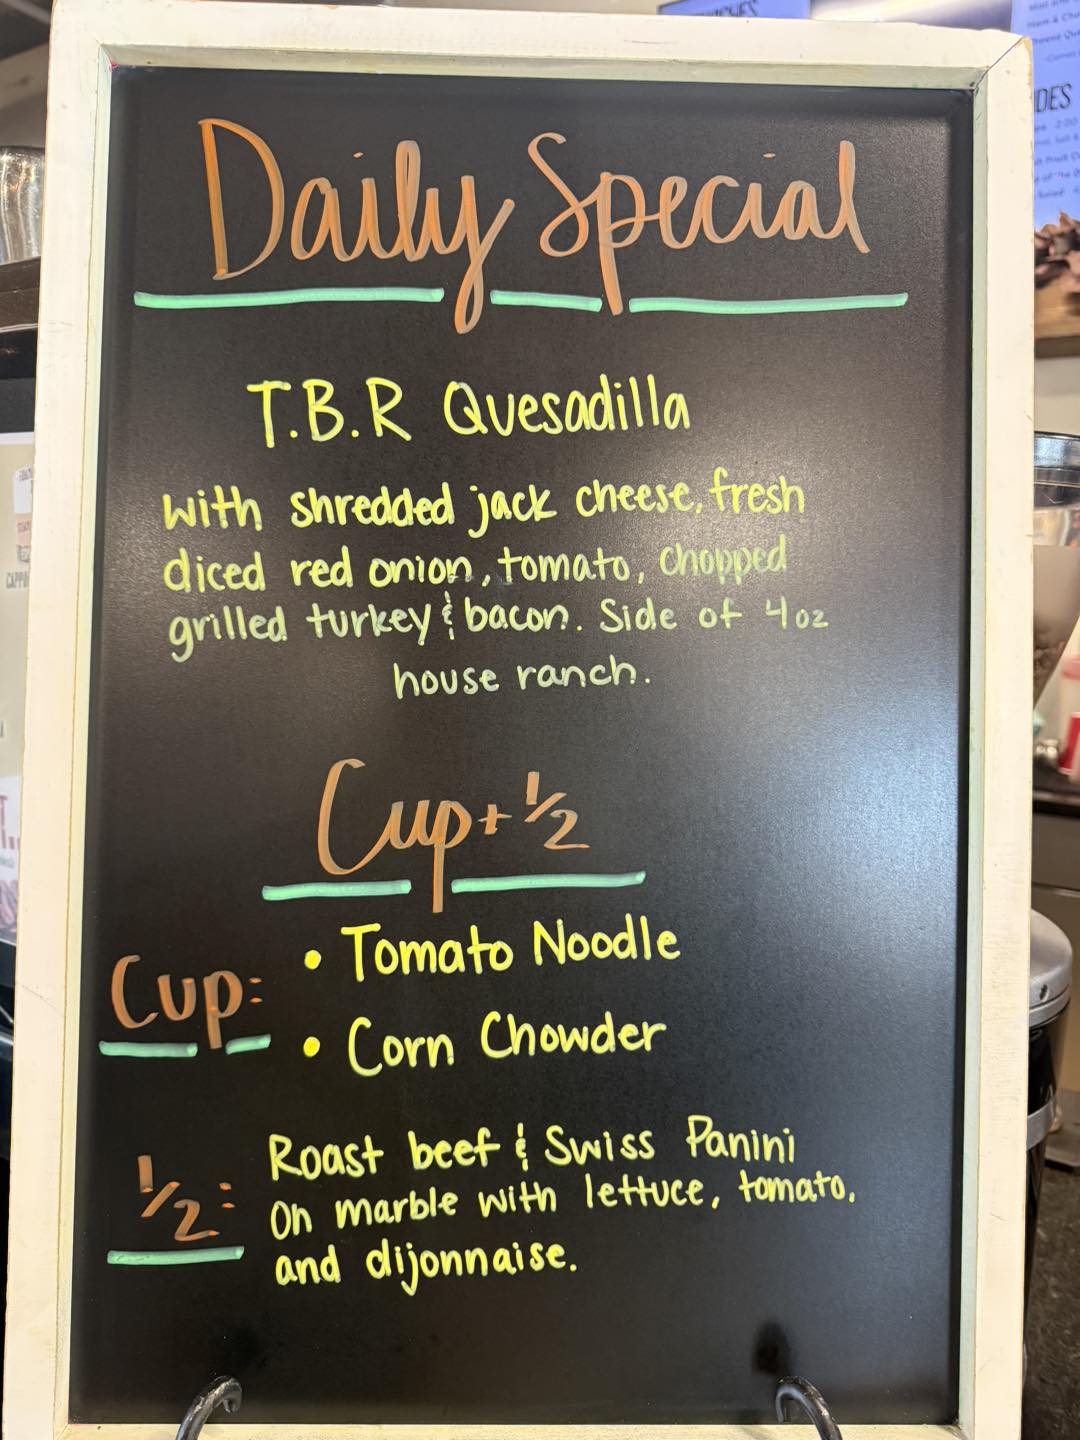 Daily Special
T.B.R Quesadilla
with shredded jack cheese, fresh
diced red onion, tomato, chopped
grilled turkey & bacon. Side of 4oz
house ranch.
Cup + 1/2
Cup:
• Tomato Noodle
• Corn Chowder
1/2:
Roast beef & Swiss Panini
On marble with lettuce, tomato,
and dijonnaise.
DES